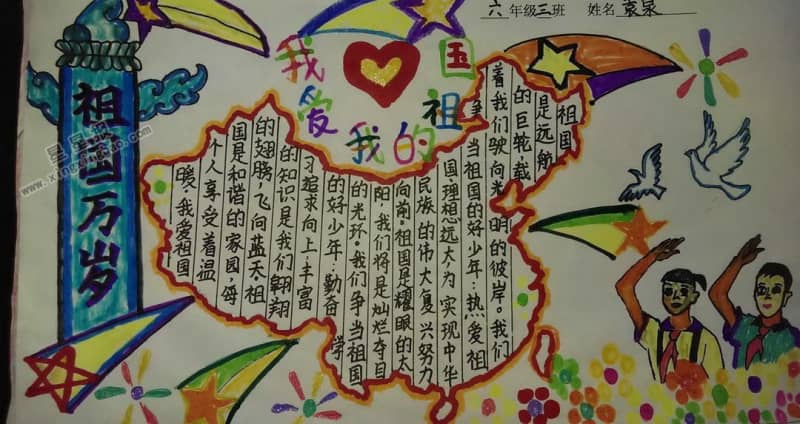 六年级三班 姓名 袁泉
我爱我的祖国
祖国万岁
祖国
是远航
的巨轮,载
着我们驶向光明的彼岸。我们
争当祖国的好少年:热爱祖
国理想远大为实现中华
民族的伟大复兴努力
向前。祖国是耀眼的太
阳,我们将是灿烂夺目
的光环。我们争当祖国
的好少年,勤奋学
习追求向上,丰富
的知识是我们翱翔
的翅膀,飞向蓝天祖
国是和谐的家园,每
个人享受着温
暖,我爱祖国